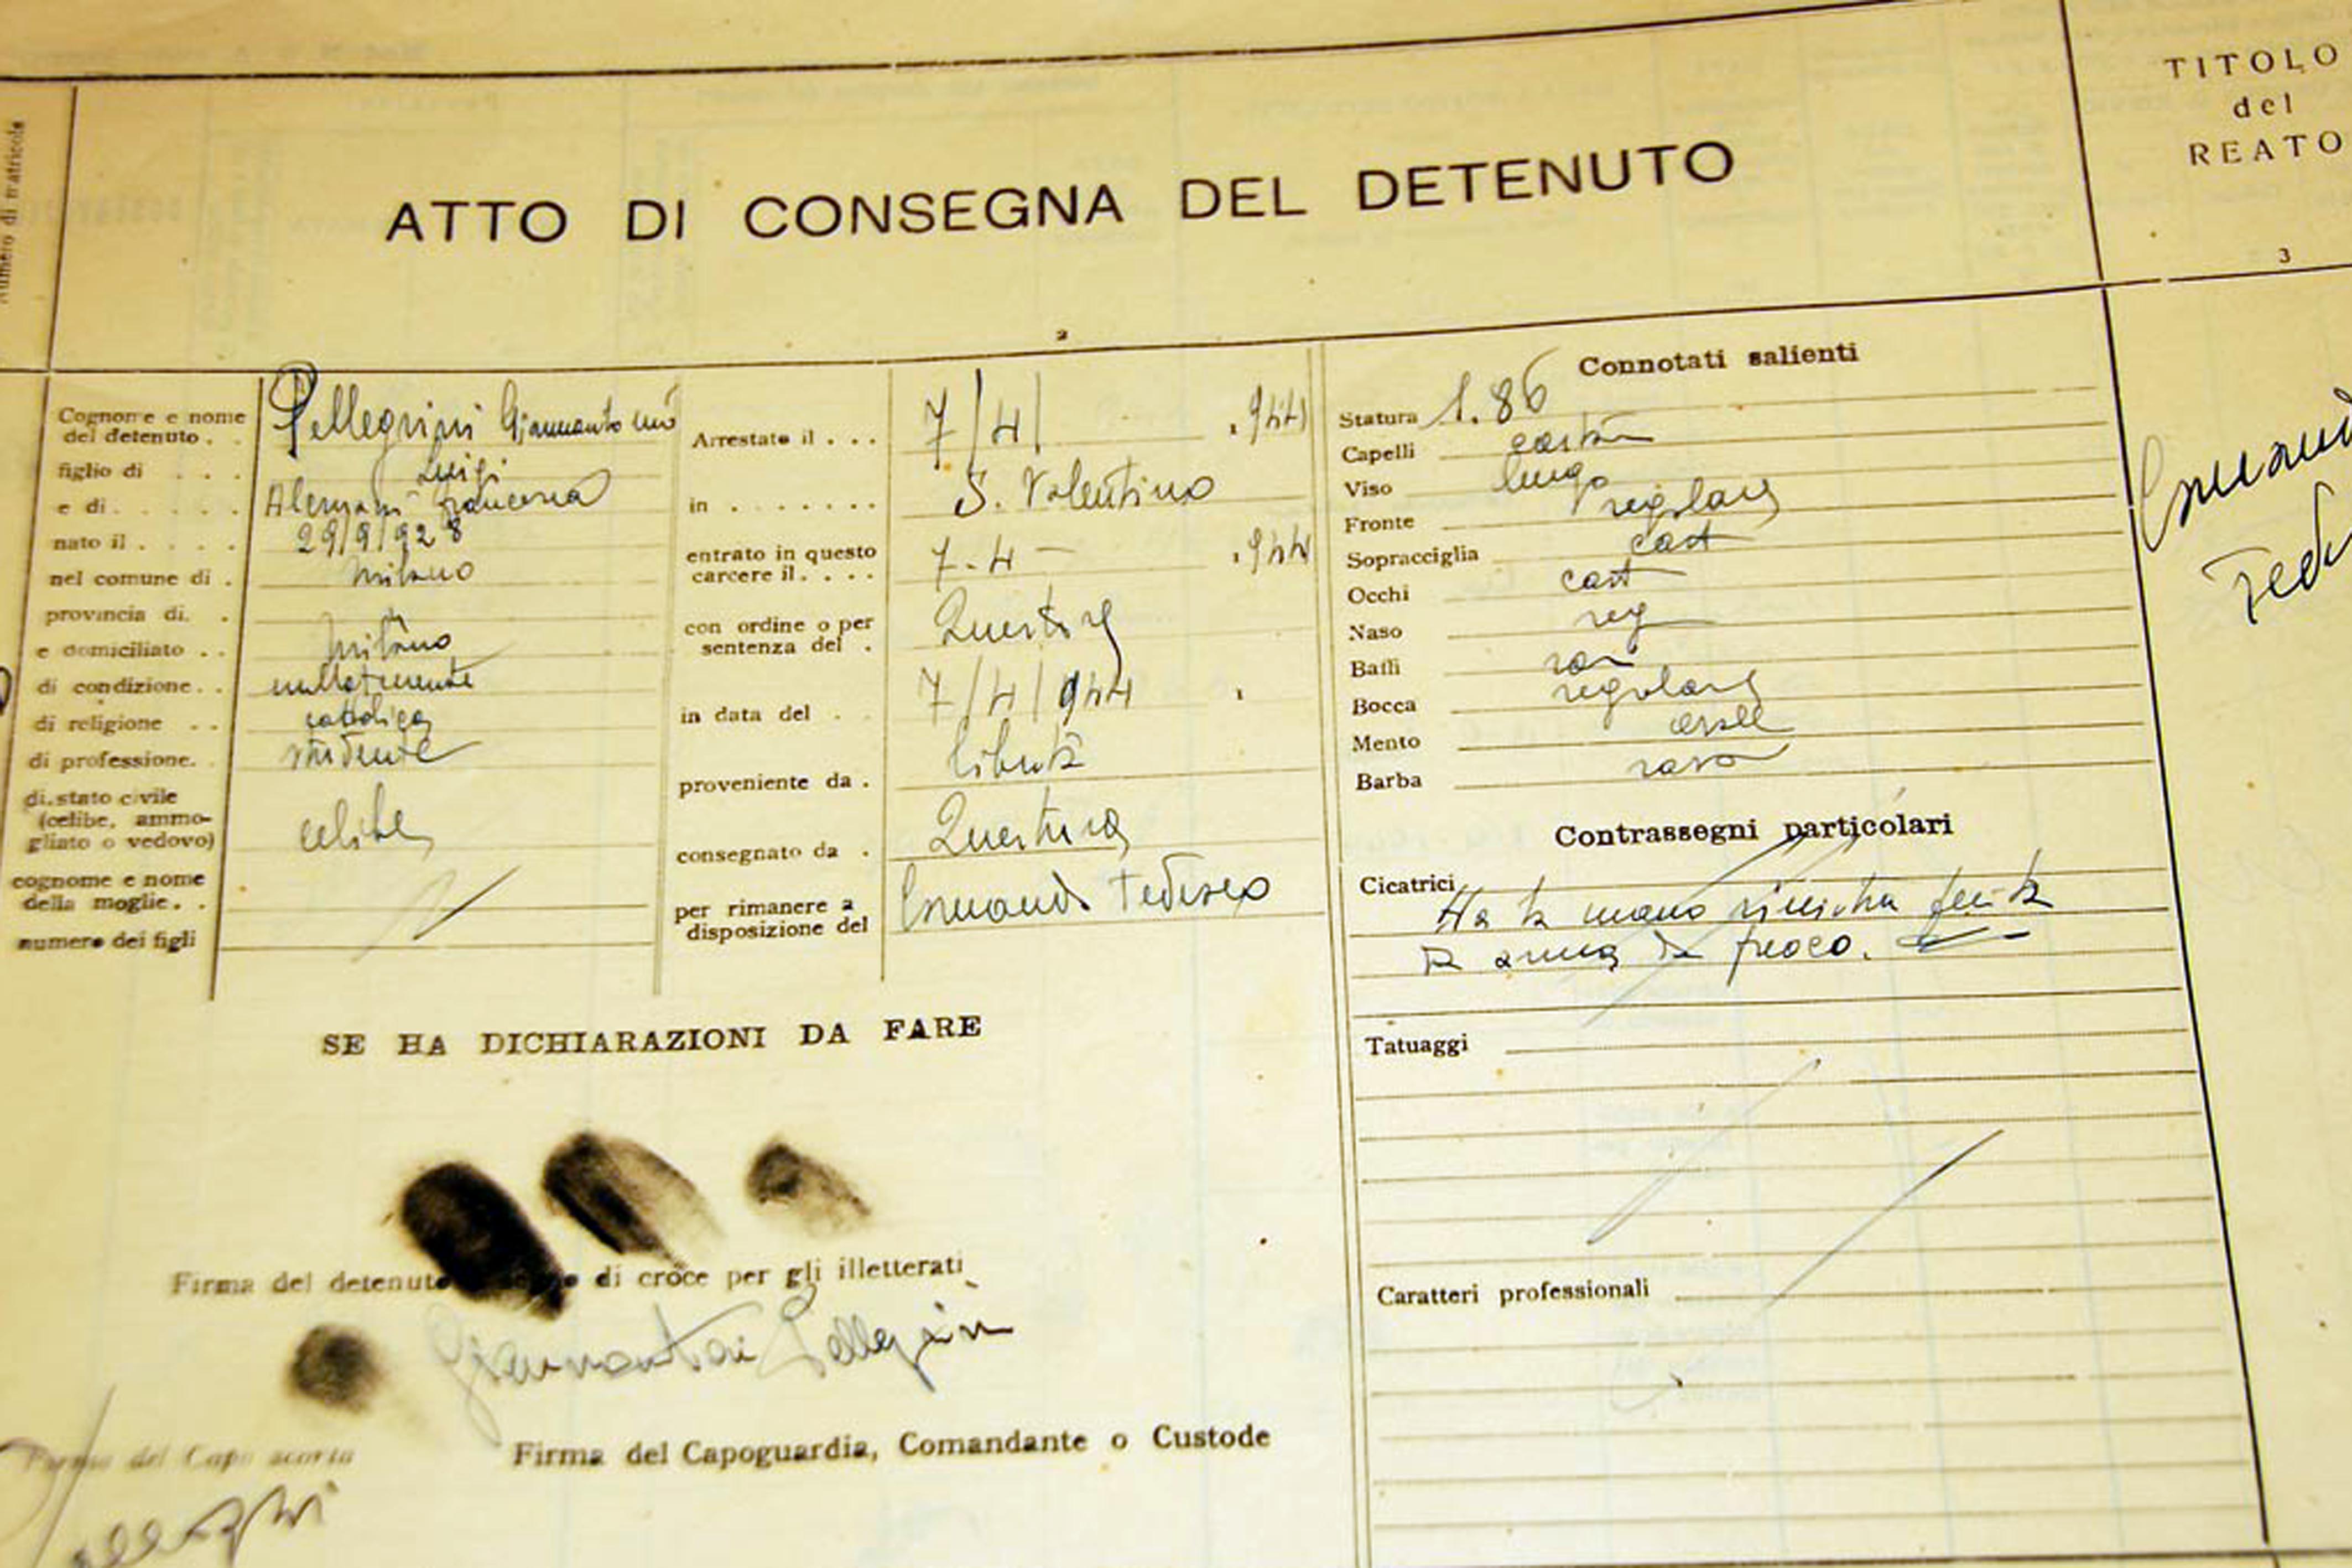 Numero di matricola
ATTO DI CONSEGNA DEL DETENUTO
TITOLO
del
REATO
2
3
Cognome e nome
del detenuto . . Pellegrini Giannantonio
figlio di . . . Luigi
e di . . . . . Francesca
nato il . . . . 29/9/928
nel comune di . Milano
provincia di. .
e domiciliato . . Milano
di condizione. . nullatenente
di religione . . cattolica
di professione. studente
di stato civile
(celibe, ammo-
gliato o vedovo) celibe
cognome e nome
della moglie. .
numero dei figli
Arrestato il . . . 7/4/ .944
in . . . . . . . S. Valentino
entrato in questo
carcere il. . . . 7-4- .944
con ordine o per
sentenza del . Questura
in data del . 7/4/944
proveniente da . libertà
consegnato da . Questura
per rimanere a
disposizione del Comando Tedesco
Connotati salienti
Statura 1.86
Capelli cast
Viso lungo
Fronte regolare
Sopracciglia cast
Occhi cast
Naso reg
Baffi
Bocca regolare
Mento
Barba rasa
Contrassegni particolari
Cicatrici Ha la mano sinistra ferita
da arma da fuoco.
Tatuaggi
Caratteri professionali
Comando
Tede
SE HA DICHIARAZIONI DA FARE
Firma del detenuto o segno di croce per gli illetterati
Giannantonio Pellegrini
Firma del Capo scorta
Firma del Capoguardia, Comandante o Custode